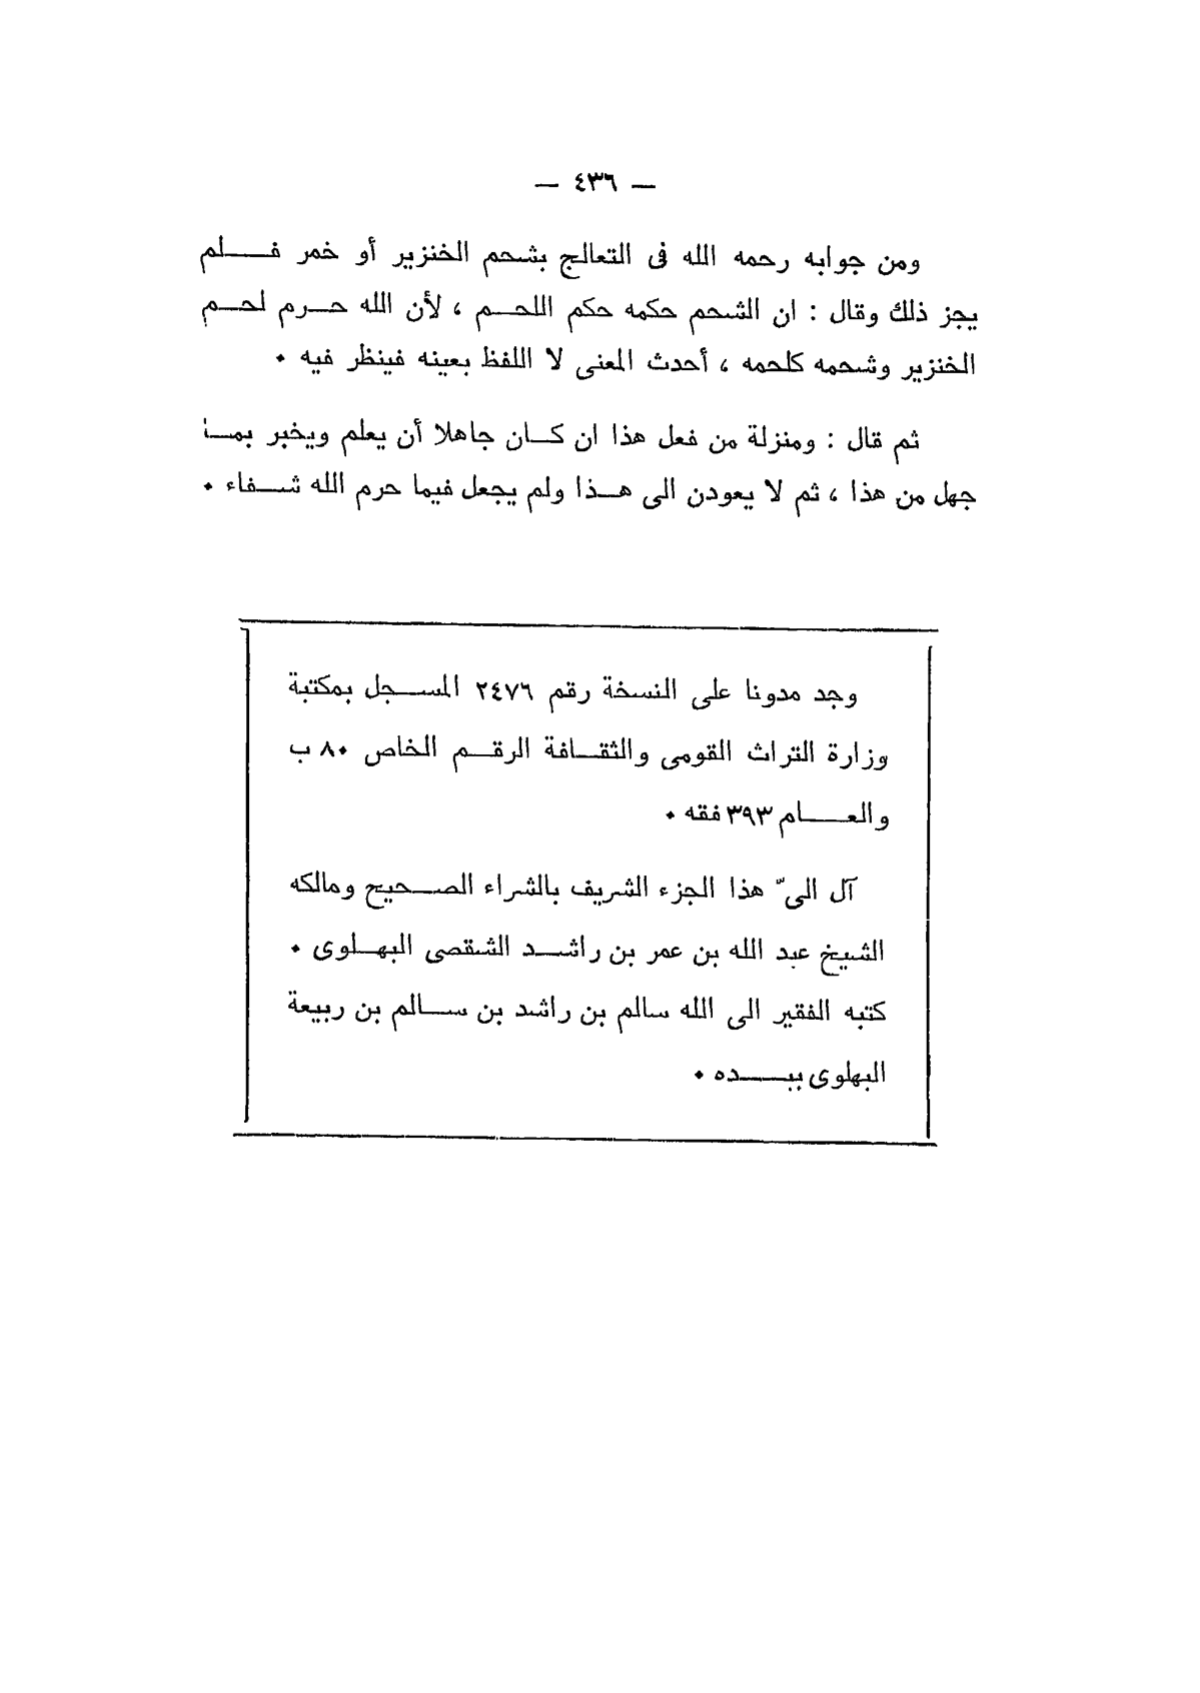 — ٤٣٦ —
ومن جوابه رحمه الله فى التعالج بشحم الخنزير أو خمر فلم
يجز ذلك وقال : ان الشحم حكمه حكم اللحم ، لأن الله حرم لحم
الخنزير وشحمه كلحمه ، أحدث المعنى لا اللفظ بعينه فينظر فيه .
ثم قال : ومنزلة من فعل هذا ان كان جاهلا أن يعلم ويخبر بما
جهل من هذا ، ثم لا يعودن الى هذا ولم يجعل فيما حرم الله شفاء .
وجد مدونا على النسخة رقم ٢٤٧٦ المسجل بمكتبة
وزارة التراث القومى والثقافة الرقم الخاص ٨٠ ب
والعام ٣٩٣ فقه .
آل الىّ هذا الجزء الشريف بالشراء الصحيح ومالكه
الشيخ عبد الله بن عمر بن راشد الشقصى البهلوى .
كتبه الفقير الى الله سالم بن راشد بن سالم بن ربيعة
البهلوى بيده .